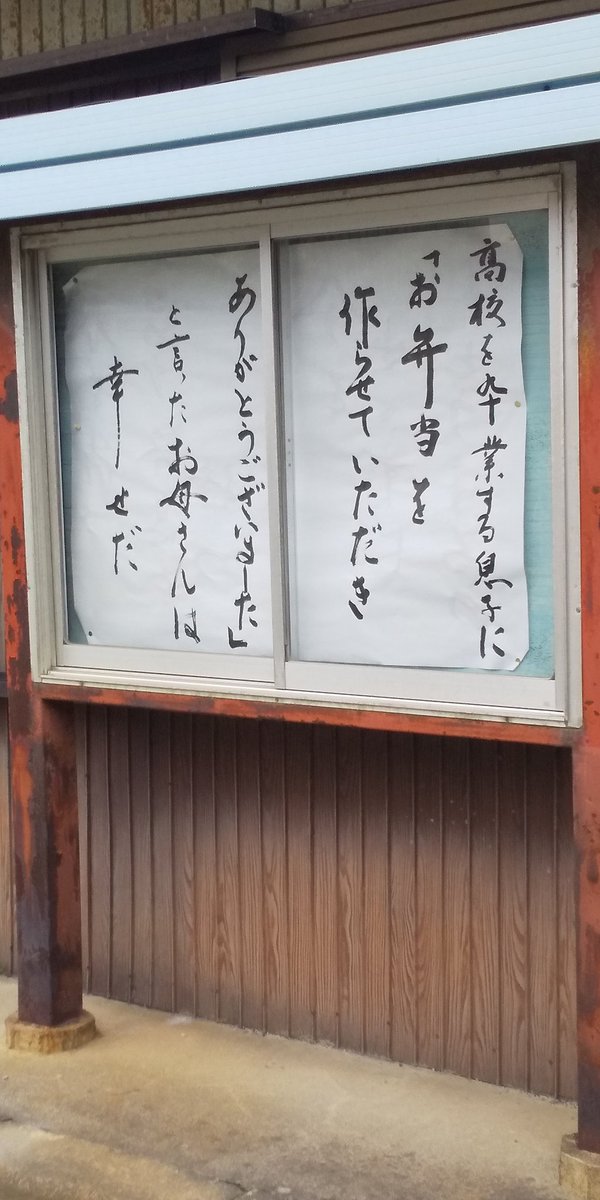 高校を卆業する息子に
「お弁当を
作らせていただき
ありがとうございました」
と言ったお母さんは
幸せだ